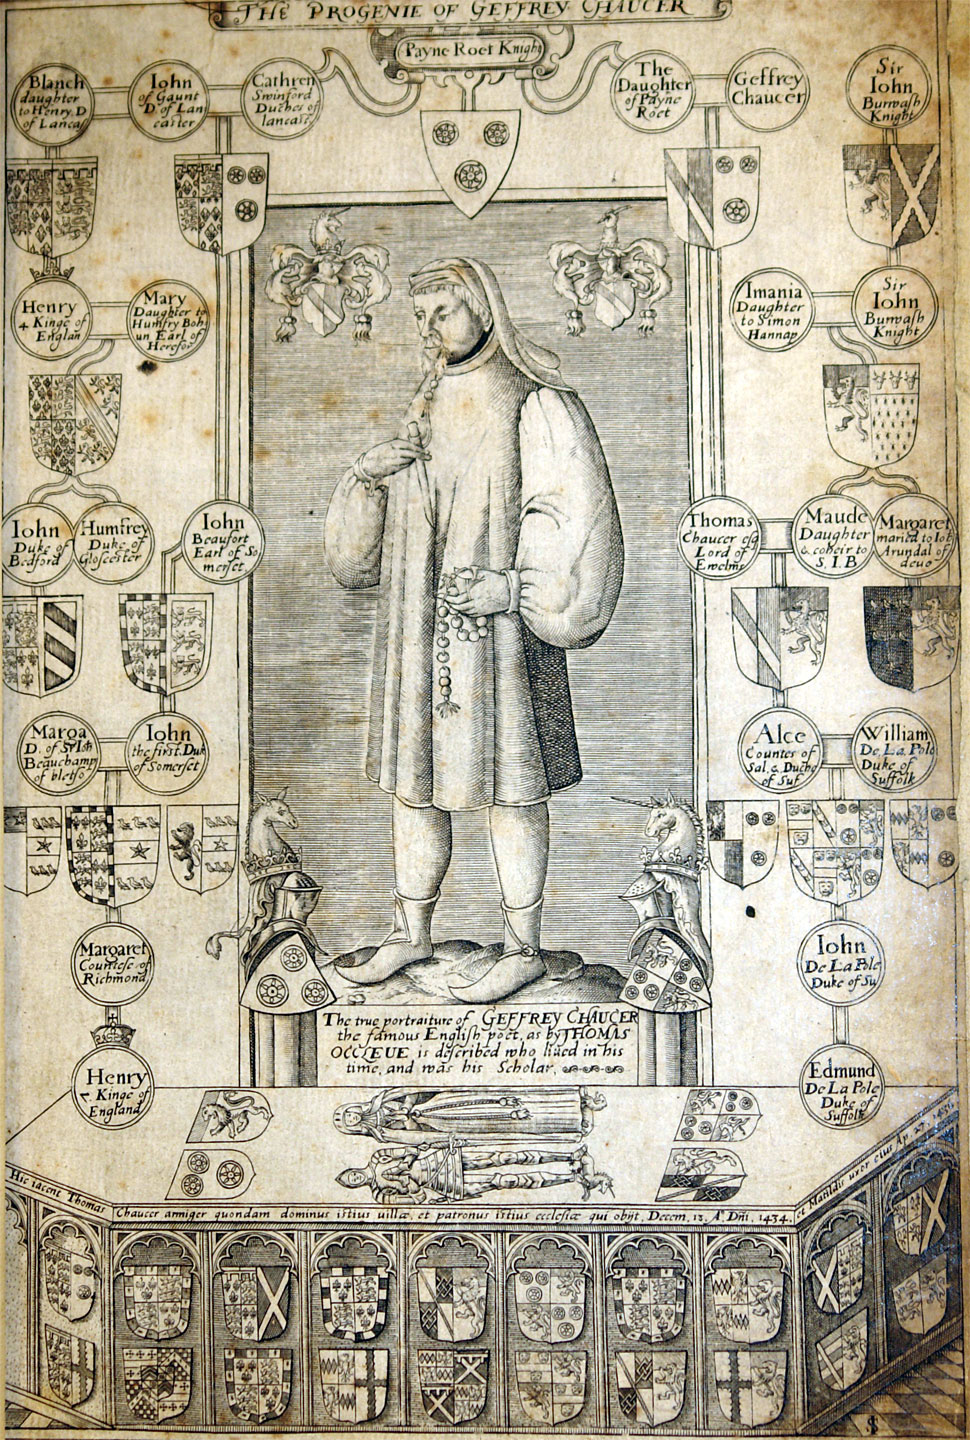 THE PROGENIE OF GEFFREY CHAUCER
Payne Roet Knight
Blanch
daughter
to Henry D.
of Lancas
Iohn
of Gaunt
D. of Lan
caster
Cathren
Swinford
Duches of
lancas
The
Daughter
of Payne
Roet
Geffrey
Chaucer
Sir
Iohn
Burwash
Knight
Henry
4 Kinge of
Englan
Mary
Daughter to
Humfry Boh
in Ear. of
Herefor
Imania
Daughter
to Simon
Hannap
Sir
Iohn
Burwash
Knight
Iohn
Duke of
Bedford
Humfrey
Duke of
Glocester
Iohn
Beaufort
Earl of So
merset
Thomas
Chaucer esq
Lord of
Ewelme
Maude
Daughter
& coheir to
S. I. B
Margaret
maried to Iot
Arundal of
Marga
D. of Sr Ioh
Beauchamp
of bletso
Iohn
the first Duk
of Somerset
Alce
Countes of
Sal. & Duche
of Suf.
William
De LA Pole
Duke of
Suffolk
Margaret
Countesse of
Richmond
Iohn
De LA Pole
Duke of Su
Henry
7 Kinge of
England
Edmund
De LA Pole
Duke of
Suffolk
The true portraiture of GEFFREY CHAUCER
the famous English poet, as by THOMAS
OCCLEUE is described who liued in his
time, and was his Scholar,
Hic iacent Thomas
Chaucer armiger quondam dominus istius villæ, et patronus istius ecclesiæ qui obijt, Decem, 13, A° Dni, 1434
et Matildis uxor eius Ap 27, 1436